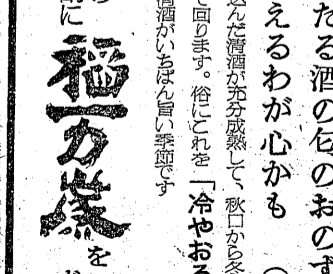 たる酒の匂のおのず
えるわが心かも
込んだ清酒が充分成熟して、秋口から冬
て回ります。俗にこれを「冷やおろ
清酒がいちばん旨い季節です
に福万歳を